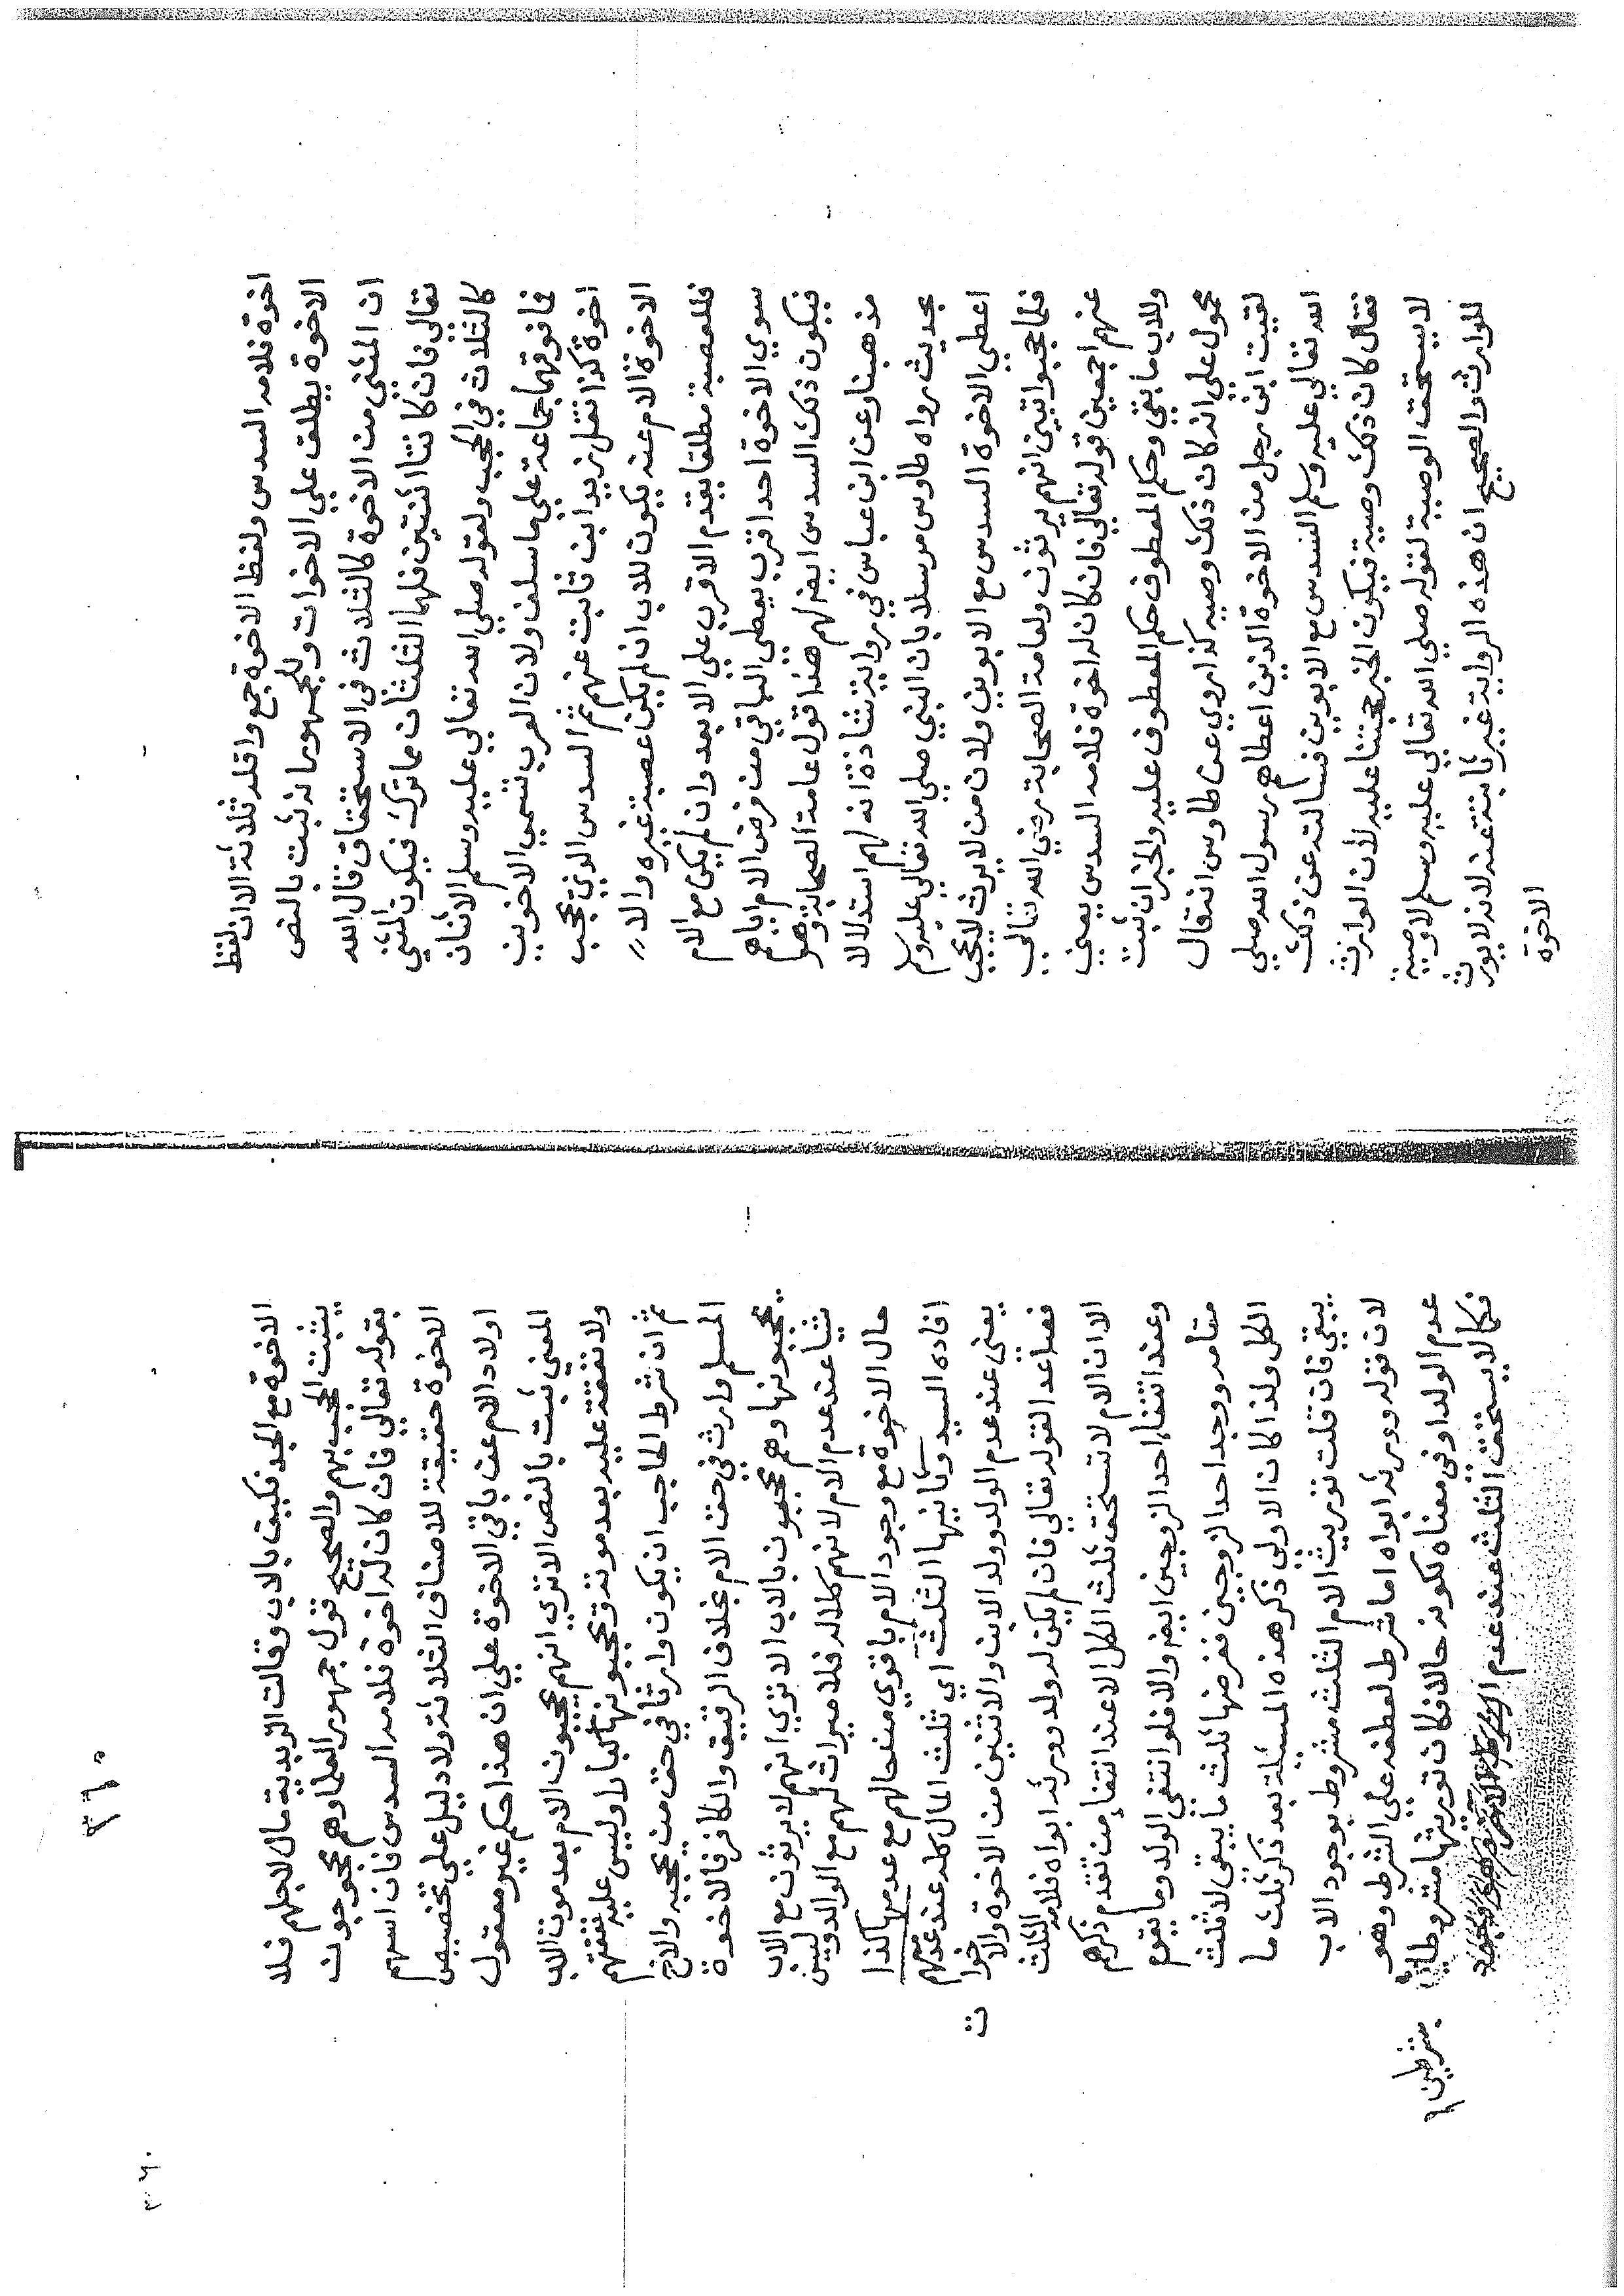 اخوة فلامه السدس ولفظ الاخوة جمع واقله ثلاثة الا ان لفظ
الاخوة يطلق علي الاخوات وللجمهور انه ثبت بالنص
ان المثني من الاخوة كالثلاث في الاستحقاق قال الله
تعالي فان كانتا اثنتين فلهما الثلثان مما ترك فيكون المثني
كالثلاث في الحجب ولقوله صلي الله تعالي عليه وسلم الاثنان
فما فوقهما جماعة علي ما سلف ولان العرب تسمي الاخوين
اخوة كذا نقل زيد ابن ثابت عنهم ثم السدس الذي تحجب
الاخوة الام عنه يكون للاب ان لم يكن عصبة غيره والا
فللعصبة مطلقا يقدم الاقرب علي الابعد وان لم يكن مع الام
سوي الاخوة احد اقرب يعطي الباقي من فرض الام اياهم
فيكون ذلك السدس ايضا لهم هذا قول عامة الصحابة وهو
مذهبنا وعن ابن عباس في رواية شاذة انه لهم استدلالا
بحديث رواه طاوس مرسلا بان النبي صلي الله تعالي عليه وسلم
اعطي الاخوة السدس مع الابوين ولان من لا يرث لا يحجب
فلما حجبوا تبين انهم يرثون ولعامة الصحابة رضي الله تعالي
عنهم اجمعين قوله تعالي فان كان له اخوة فلامه السدس يعني
وللاب ما بقي وحكم المعطوف حكم المعطوف عليه والخبر ان ثبت
محمول علي انه كان ذلك وصيه كذا روي عن طاوس انه قال
لقيت ابن رجل من الاخوة الذين اعطاهم رسول الله صلي
الله تعالي عليه وسلم السدس مع الابوين فسالته عن ذلك
فقال كان ذلك وصية فيكون الخبر حجتنا عليه لان الوارث
لا يستحق الوصية لقوله صلي الله تعالي عليه وسلم لا وصية
للوارث والصحيح ان هذه الرواية غير ثابتة عنه لانه لا يورث
الاخوة
٣٦٠
الاخوة مع الجد فكيف بالاب وقالت الزيدية مال لاجلهم فلا
يثبت الحجب بهم والصحيح قول جمهور العلما وهم محجوجون
بقوله تعالي فان كان له اخوة فلامه السدس فان اسم
الاخوة حقيقة للاصناف الثلاثة ولا دليل علي تخصيص
اولاد الام عن باقي الاخوة علي ان هذا حكم غير معقول
المعني ثبت بالنص الا تري انهم يحجبون الام بعد موت الاب
ولا نفقة عليه بعد موته ويحجبونها كبارا وليس عليه نفقتهم
ثم ان شرط الحاجب ان يكون وارثا في حق من يحجبه والاخ
المسلم وارث في حق الام بخلاف الرقيق والكافر فالاخوة
يحجبونها وهم محجبون بالاب الا تري انهم لا يرثون مع الاب
شيا عند عدم الام لانهم كلاله فلا ميراث لهم مع الوالد وليس
حال الاخوة مع وجود الام باقوي من حالهم مع عدمها كذا
افاده السيد وثانيها الثلث اي ثلث المال كله عند عدمهم
يعني عند عدم الولد وولد الابن والاثنين من الاخوة والاخوات
فصاعدا لقوله تعالي فان لم يكن له ولد وورثه ابواه فلامه الثلث
الا ان الام لا تستحق ثلث الكل الا عند انتفا من تقدم ذكرهم
وعند انتفا احد الزوجين ايضا والا فلو انتفي الولد وما يقوم
مقامه ووجد احد الزوجين ففرضها ثلث ما يبقي لا ثلث
الكل ولذا كان الاولي ذكر هذه المسيلة بعد ذكر ثلث ما
يبقي فان قلت توريث الام الثلث مشروط بوجود الاب
لان قوله وورثه ابواه اما شرط لعطفه علي الشرط وهو
عدم الولد او في معناه لكونه حالا فكان توريثها مشروطا
بشرطين
فكما لا يستحق الثلث عند عدم